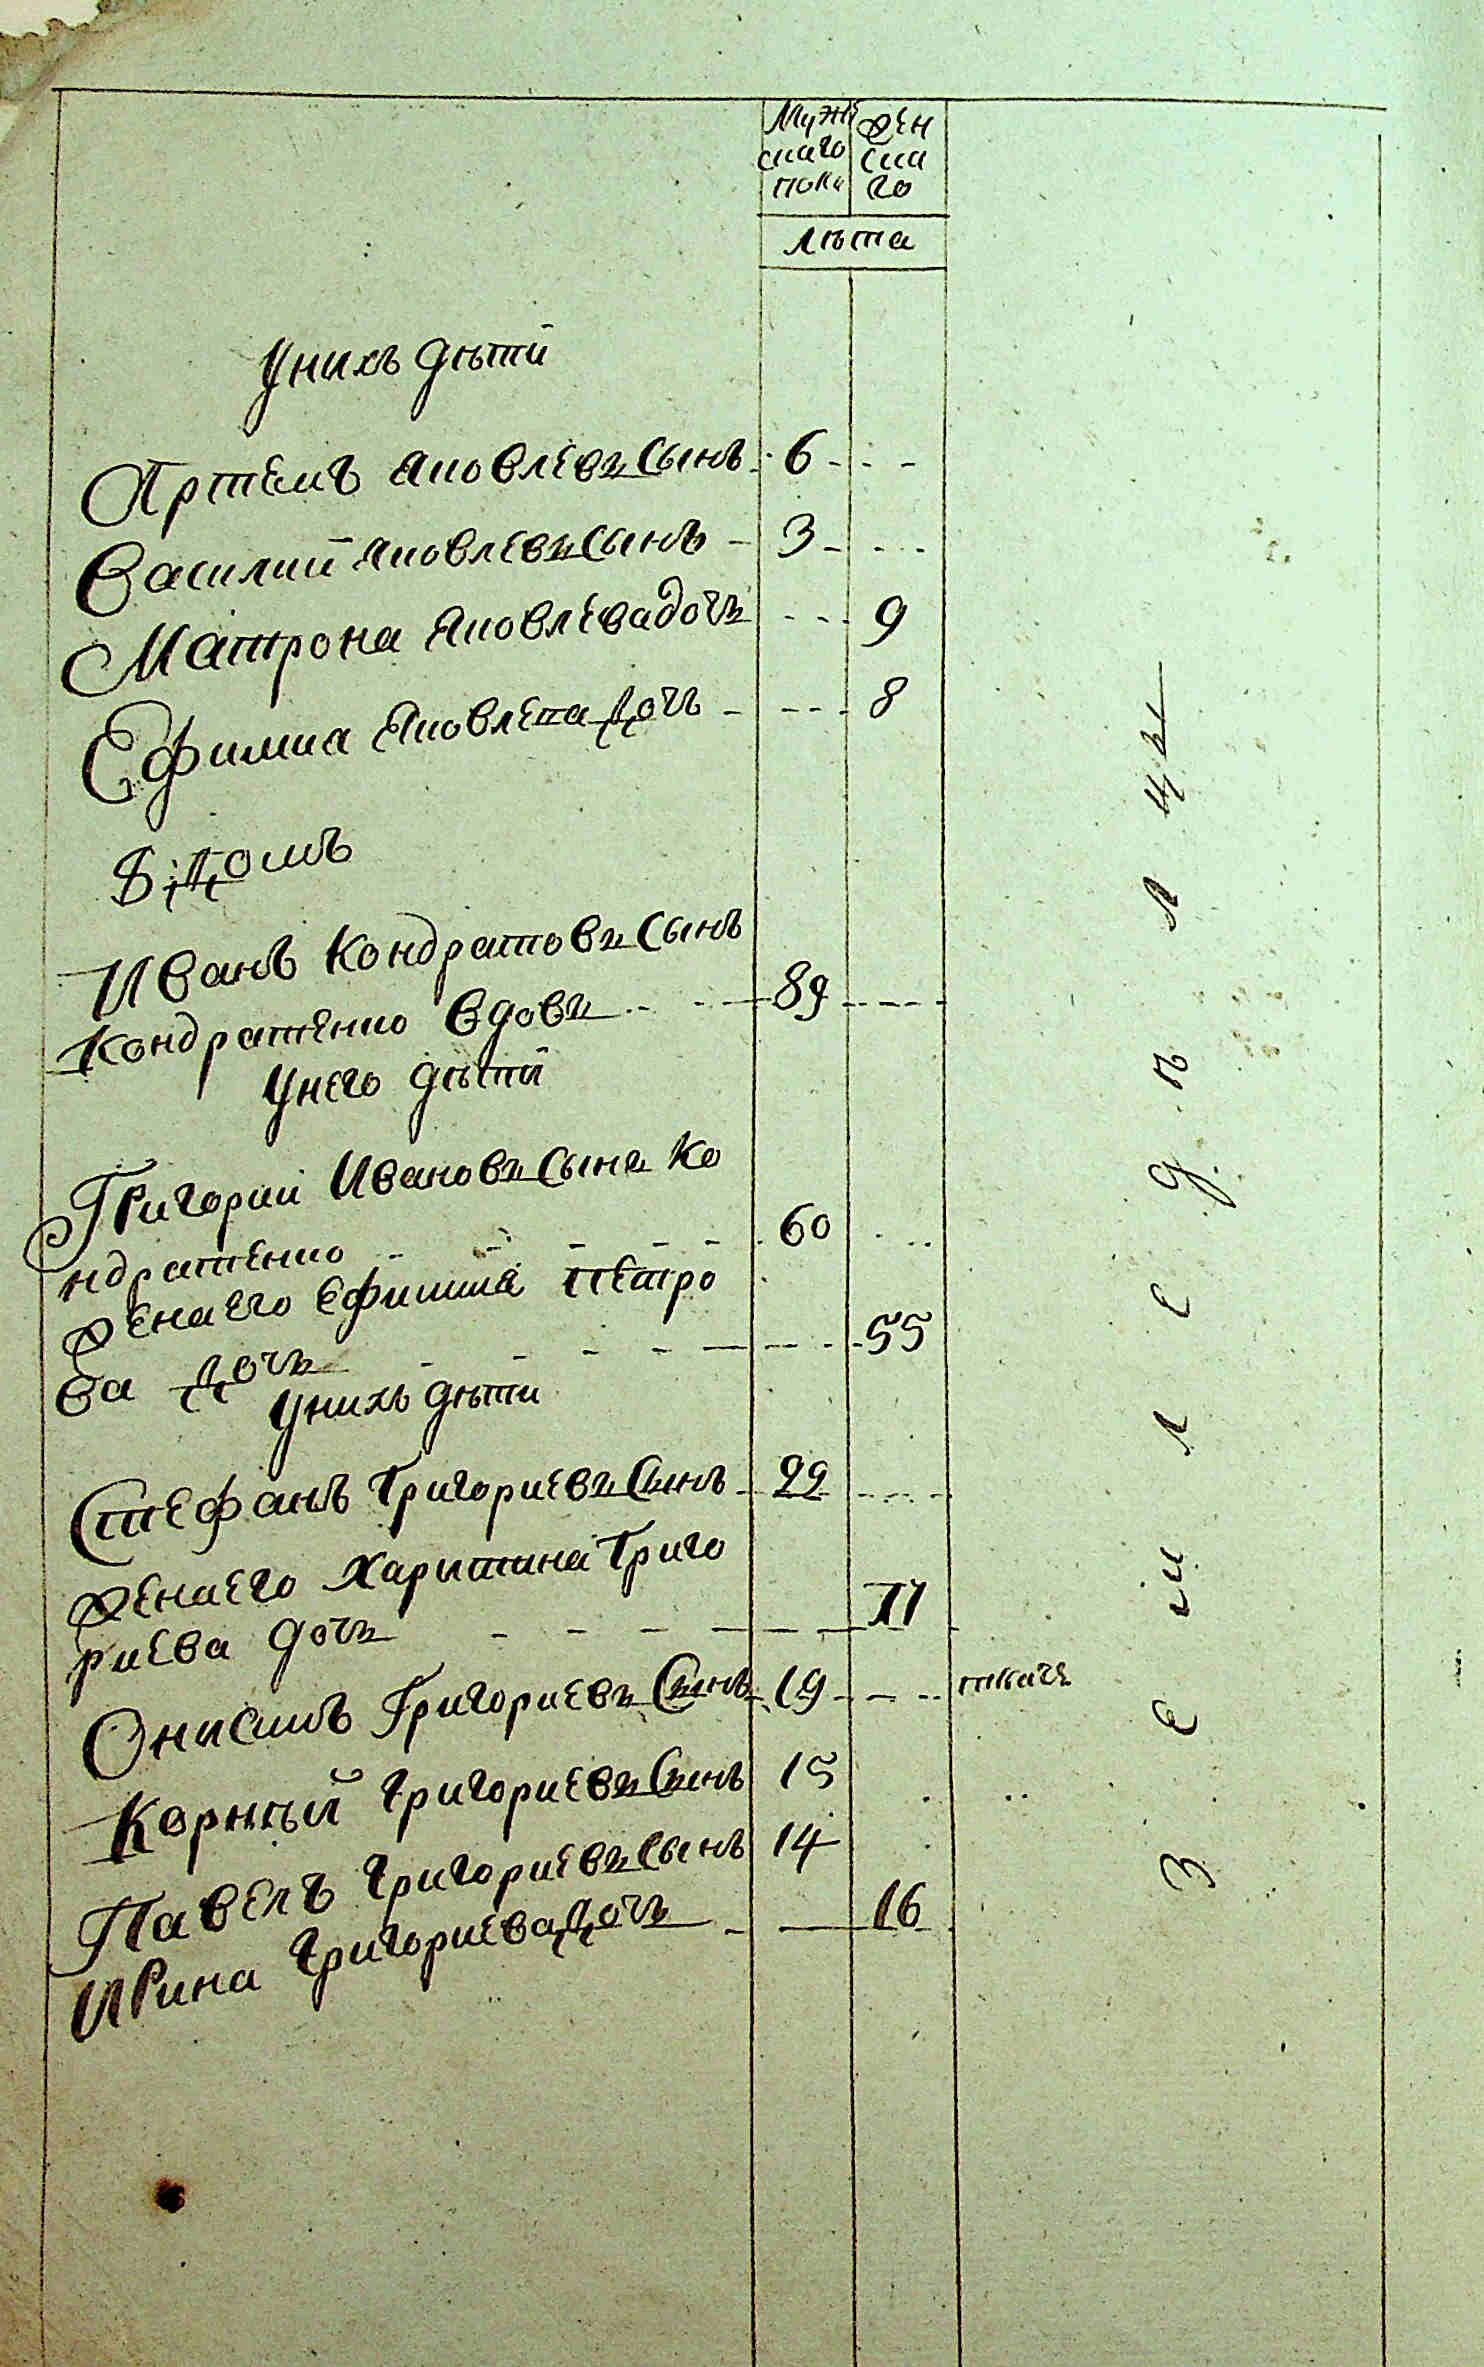 Муже
скаго
пола
жен
ска
го
лѣта
Унихъ дѣти
Артемъ Яковлевъ Сынъ 6
Василий Яковлевъ Сынъ 3
Матрона Яковлева дочь 9
Ефимиа Яковлева дочъ 8
8 Домъ
Иванъ Кондратовъ Сынъ
Кондратенко вдовъ 89
Унего дѣти
Григории Ивановъ Сынъ Ко
ндратенко 60
Жена его Ефимиа Петро
ва дочь 55
Унихъ дѣти
Стефанъ Григориевъ Сынъ 22
Жена его Харитина Григо
риева дочь
Онисимъ Григориевъ Сынъ 19 ткаче
Корнѣй Григориевъ Сынъ 15
Павелъ Григориевъ Сынъ 14
Ирина Григориева Дочь 16
Земледѣлцы